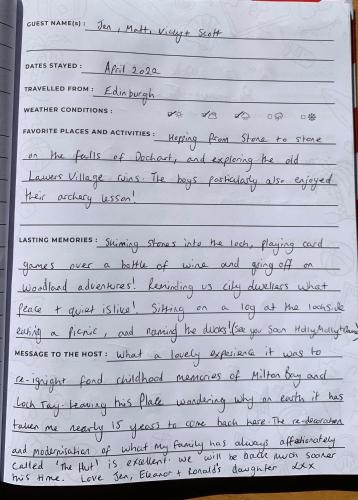 GUEST NAME(s): Jen, Matt, Vicky + Scott
DATES STAYED: April 2022
TRAVELLED FROM: Edinburgh
WEATHER CONDITIONS:
FAVORITE PLACES AND ACTIVITIES: Hopping from Stone to stone
on the falls of Dochart, and exploring the old
Lawers Village ruins. The boys particularly also enjoyed
their archery lesson!
LASTING MEMORIES: Skimming stones into the loch, playing card
games over a bottle of wine and going off on
woodland adventures! Reminding us city dwellers what
peace + quiet is like! Sitting on a log at the lochside
eating a picnic, and naming the ducks! (See you soon Holly, Molly +
MESSAGE TO THE HOST: What a lovely experience it was to
re-ignight fond childhood memories of Milton Bay and
Loch Tay. Leaving this Place wandering why on earth it has
taken me nearly 15 years to come back here. The re-decoration
and modernisation of what my family has always affectionately
called 'The Hut' is excellent. we will be back much sooner
this time. Love Jen, Eleanor + Ronald's daughter xxx